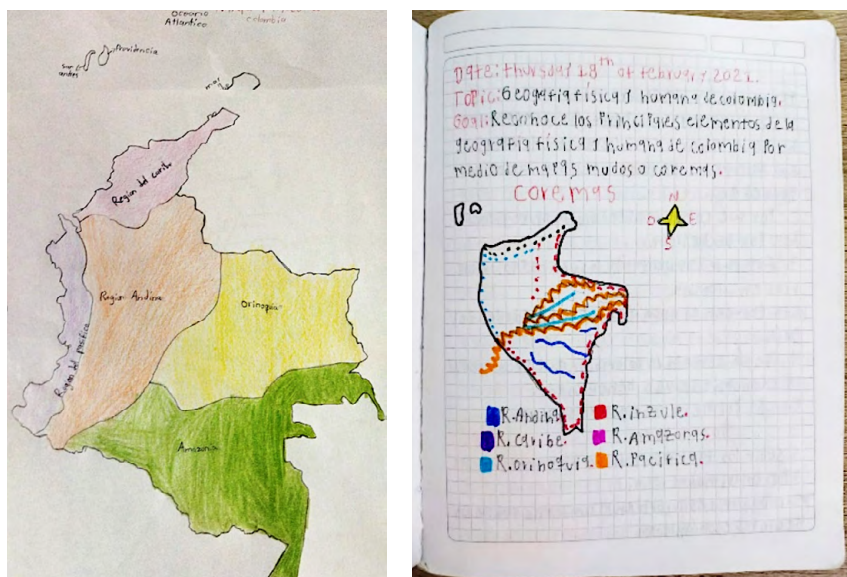 Oceano
Atlantico
colombia
Providencia
San
andres
mar
Region del carib
Region Andina
Orinoquia
Region del pacifico
Amazonia
Date: thursday 18th of february 2021.
Topic: Geogafia física y humana de colombia.
Goal: Reconoce los Principales elementos de la
geografia física y humana de colombia Por
medio de mapas mudos o coremas.
coremas
N
O E
S
R. Andina R. inzule.
R. caribe. R. Amazonas.
R. orinoquia. R. Pacifica.